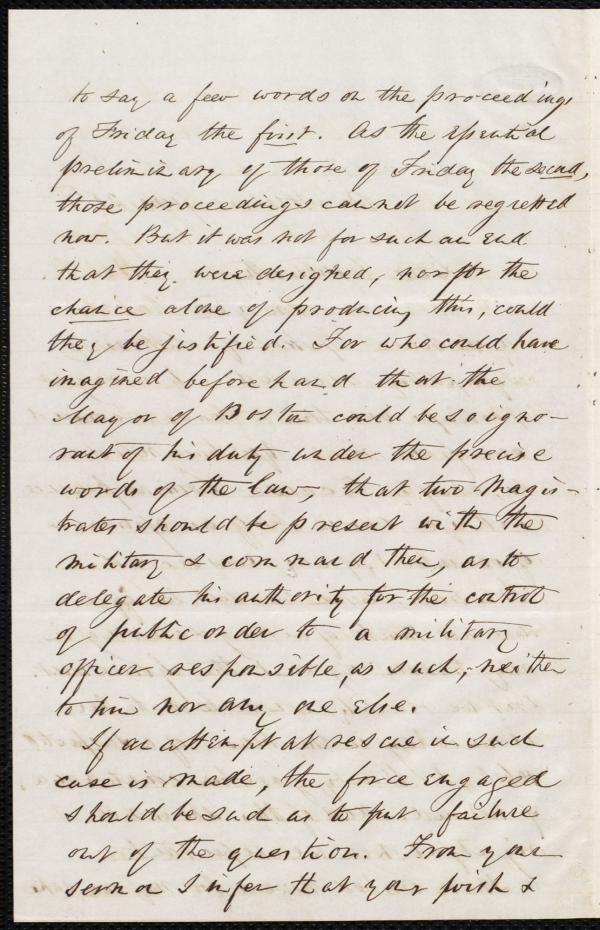 to say a few words on the proceedings
of Friday the first. As the essential
preliminary of those of Friday the second,
those proceedings cannot be regretted
now. But it was not for such an end
that they were designed, nor for the
chance alone of producing this, could
they be justified. For who could have
imagined beforehand that the
Mayor of Boston could be so igno-
rant of his duty under the precise
words of the law, that two Magis-
trates should be present with the
military & command them, as to
delegate his authority for the control
of public order to a military
officer responsible, as such, neither
to him nor any one else.
If an attempt at rescue in such
case is made, the force engaged
should be such as to put failure
out of the question. From your
sermon I infer that your wish &